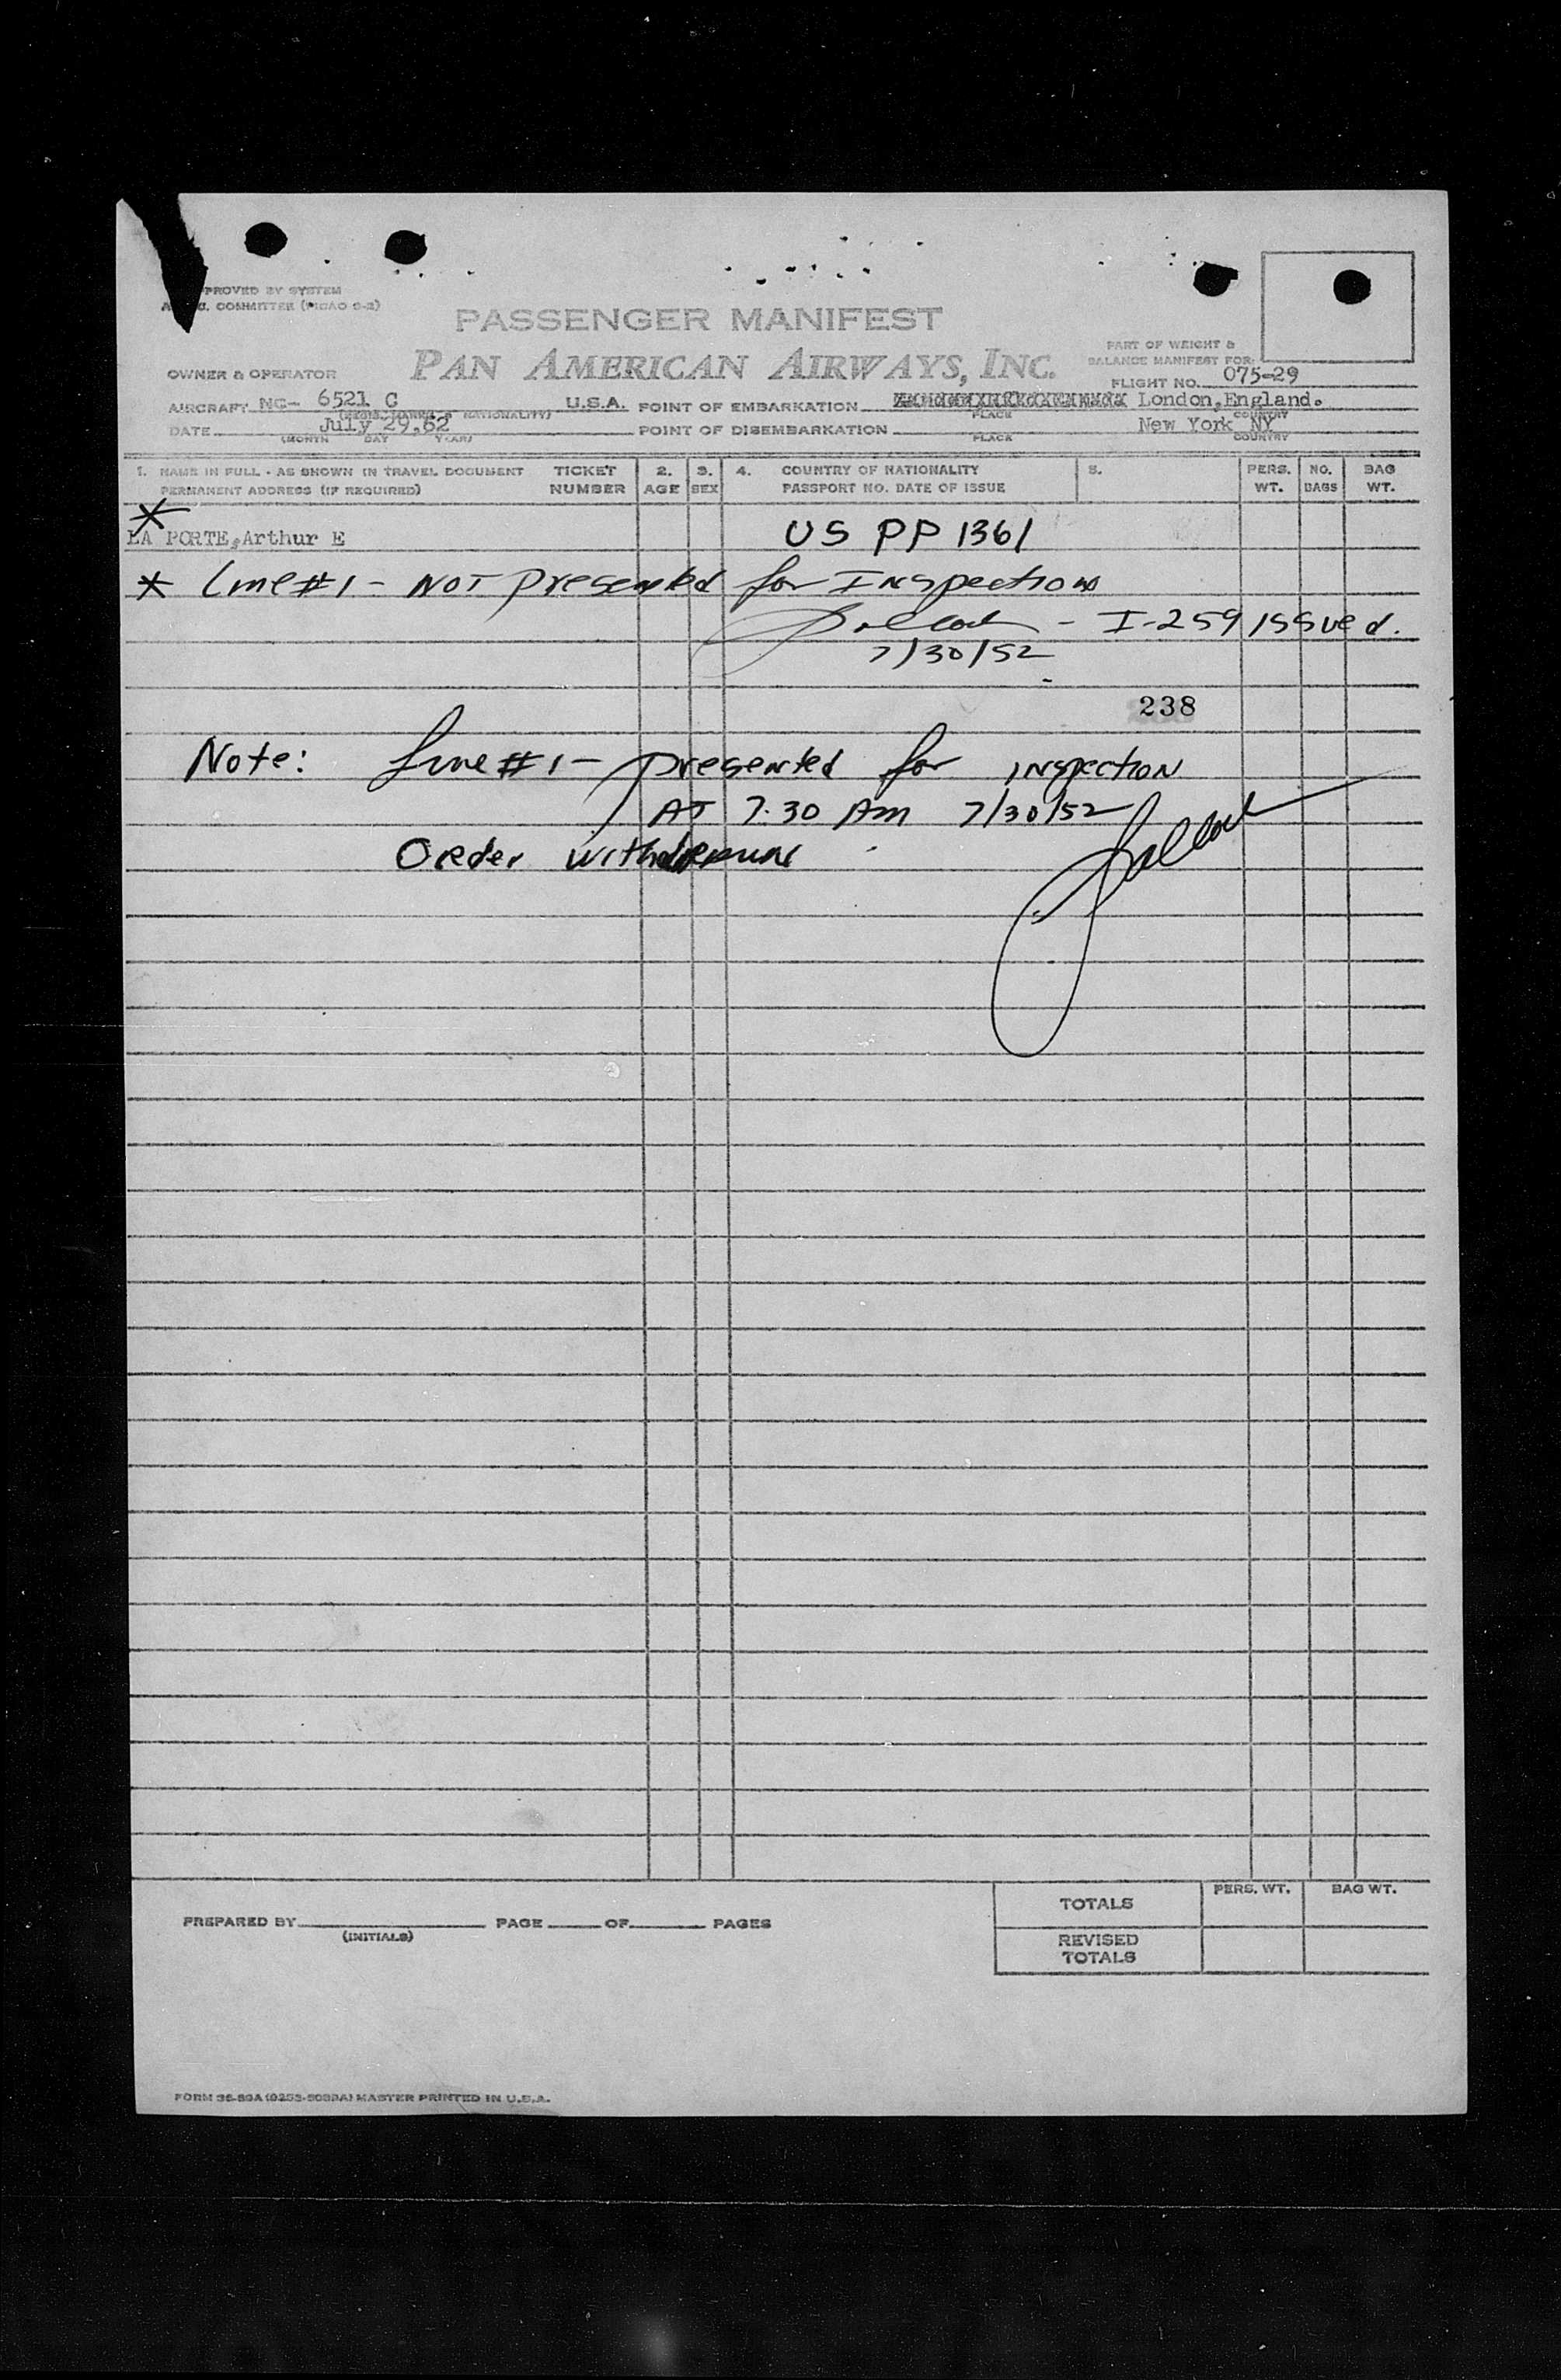 PROVED BY SYSTEM
COMMITTEE (PICAO S-2)
PASSENGER MANIFEST
PAN AMERICAN AIRWAYS, INC.
PART OF WEIGHT &
BALANCE MANIFEST FOR
OWNER & OPERATOR
FLIGHT NO. 075-29
AIRCRAFT NC- 6521 C U.S.A. POINT OF EMBARKATION London,England.
(REGIS. MARKS & NATIONALITY) PLACE COUNTRY
DATE July 29,52 POINT OF DISEMBARKATION New York NY
(MONTH DAY YEAR) PLACE COUNTRY
1. NAME IN FULL - AS SHOWN IN TRAVEL DOCUMENT TICKET 2. 3. 4. COUNTRY OF NATIONALITY 5. PERS. NO. BAG
PERMANENT ADDRESS (IF REQUIRED) NUMBER AGE SEX PASSPORT NO. DATE OF ISSUE WT. BAGS WT.
*
LA PORTE,Arthur E US PP 1361
* Line #1 - NOT presented for Inspection
- I-259 issued.
7/30/52
238
Note: Line #1 - presented for inspection
AT 7:30 Am 7/30/52
Order withdrawn
TOTALS PERS. WT. BAG WT.
PREPARED BY PAGE OF PAGES
(INITIALS)
REVISED
TOTALS
MASTER PRINTED IN U.S.A.